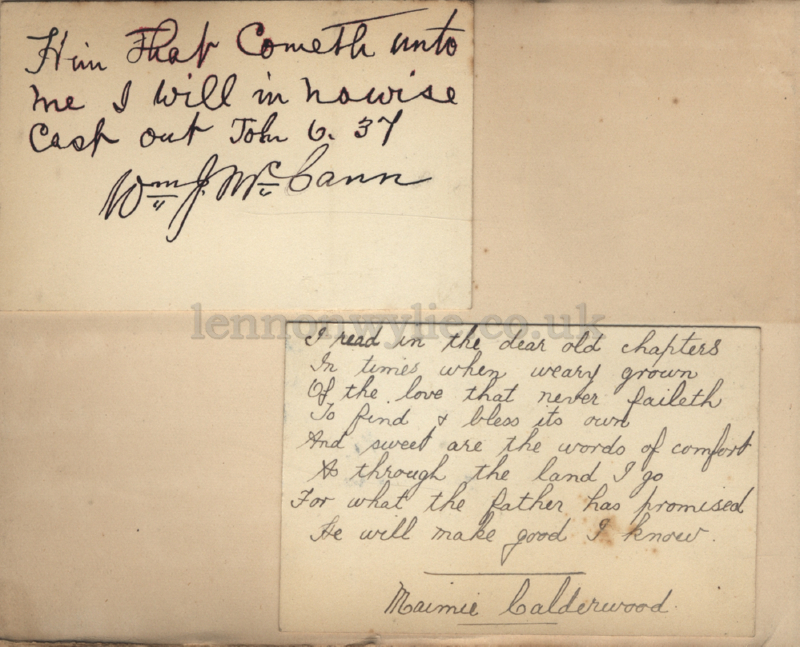 Him That Cometh unto
me I will in nowise
Cast out John 6. 37
Wm J. McCann
lennonwylie.co.uk
I read in the dear old chapters
In times when weary grown
Of the love that never faileth
To find & bless its own
And sweet are the words of comfort
As through the land I go
For what the father has promised
He will make good I know.
Maimie Calderwood.